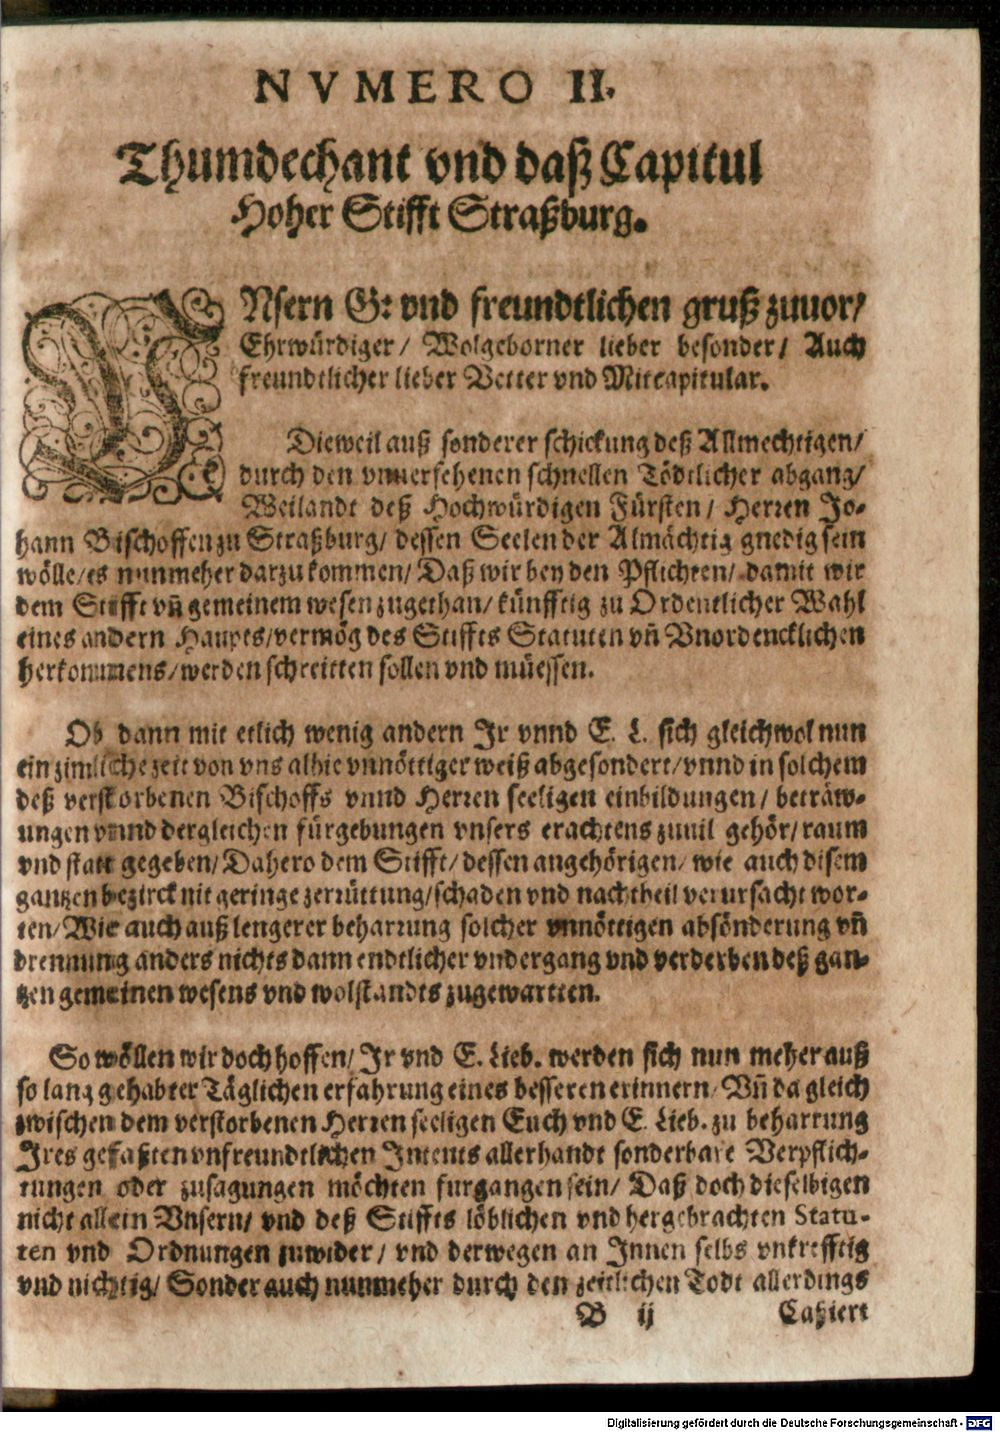 NVMERO II.
Thumdechant vnd daß Capitul
Hoher Stifft Straßburg.
VNsern G: vnd freundtlichen gruß zuuor/
Ehrwürdiger/ Wolgeborner lieber besonder/ Auch
freundtlicher lieber Vetter vnd Mitcapitular.
Dieweil auß sonderer schickung deß Allmechtigen/
durch den vnuersehenen schnellen Tödtlicher abgang/
Weilandt deß Hochwürdigen Fürsten/ Herren Jo-
hann Bischoffen zu Straßburg/ dessen Seelen der Almächtig gnedig sein
wölle/es nunmeher darzu kommen/ Daß wir bey den Pflichten/ damit wir
dem Stifft vñ gemeinem wesen zugethan/ künfftig zu Ordentlicher Wahl
eines andern Haupts/vermög des Stiffts Statuten vñ Vnordencklichen
herkommens/werden schreitten sollen vnd müessen.
Ob dann mit etlich wenig andern Jr vnnd E. L. sich gleichwol nun
ein zimliche zeit von vns alhie vnnöttiger weiß abgesondert/vnnd in solchem
deß verstorbenen Bischoffs vnnd Herren seeligen einbildungen/ beträw-
ungen vnnd dergleichen fürgebungen vnsers erachtens zuuil gehör/ raum
vnd statt gegeben/ Dahero dem Stifft/ dessen angehörigen/ wie auch disem
gantzen bezirck nit geringe zerrüttung/schaden vnd nachtheil verursacht wor-
ten/ Wir auch auß lengerer beharrung solcher vnnöttigen absönderung vñ
drennung anders nichts dann endtlicher vndergang vnd verderben deß gan-
tzen gemeinen wesens vnd wolstandts zugewartten.
So wöllen wir doch hoffen/ Jr vnd E. Lieb. werden sich nun meher auß
so lang gehabter Täglichen erfahrung eines besseren erinnern/ Vñ da gleich
zwischen dem verstorbenen Herren seeligen Euch vnd E. Lieb. zu beharrung
Jres gefaßten vnfreundtlichen Intents allerhandt sonderbare Verpflich-
tungen oder zusagungen möchten furgangen sein/ Daß doch dieselbigen
nicht allein Vnsern/ vnd deß Stiffts löblichen vnd hergebrachten Statu-
ten vnd Ordnungen zuwider/ vnd derwegen an Jnnen selbs vnkrefftig
vnd nichtig/ Sonder auch nunmeher durch den zeitlichen Todt allerdings
B ij Caßiert
Digitalisierung gefördert durch die Deutsche Forschungsgemeinschaft - DFG